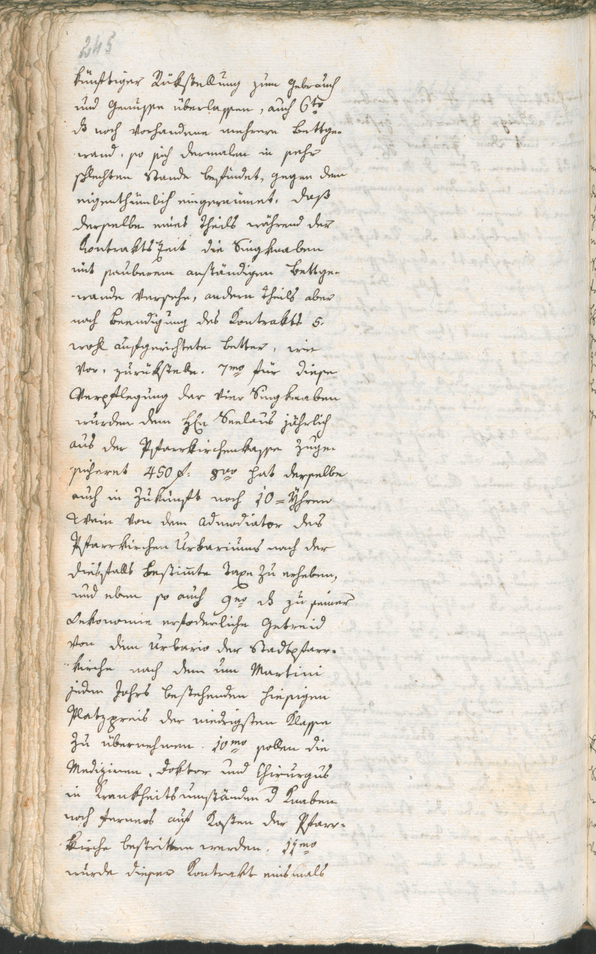 245
künftiger Rükstellung zum Gebrauch
und Genusse überlassen, auch 6to
dß noch vorhandene mehrere Bettge-
wand, so sich dermalen in sehr
schlechten Stande befindet, gegen dem
eigenthümlich eingeraumet, daß
derselbe eines Theils während der
KontraktsZeit die Singknaben
mit sauberem anständigen Bettge-
-wande versehe, andern Theils aber
nach Beendigung des Kontrakts 5.
wohl aufgerichtete Better, wie
vor, zurükstelle. 7mo für diese
Verpflegung der vier Singknaben
wurden dem HEn Seelaus jährlich
aus der Pfarrkirchenkasse zuge-
sicheret 450 f. 8vo hat derselbe
auch in Zukunft noch 10 = Yhren
Wein von dem Admodiator des
Pfarrkirchen Urbariums nach der
diesfalls bestimte Taxe zu erheben,
und eben so auch 9no dß zu seiner
Oekonomie erfoderliche Getreid
von dem Urbario der Stadtpfarr-
-kirche nach dem um Martini
jeden Jahrs bestehenden hiesigen
Platzpreis der niedrigsten Klasse
zu übernehmen. 10mo sollen die
Medizinen, Doktor und Chirurgus
in Krankheitsumständen d Knaben
noch ferners auf Kosten der Pfarr-
-kirche bestritten werden. 11mo
wurde dieser Kontrakt einsmals